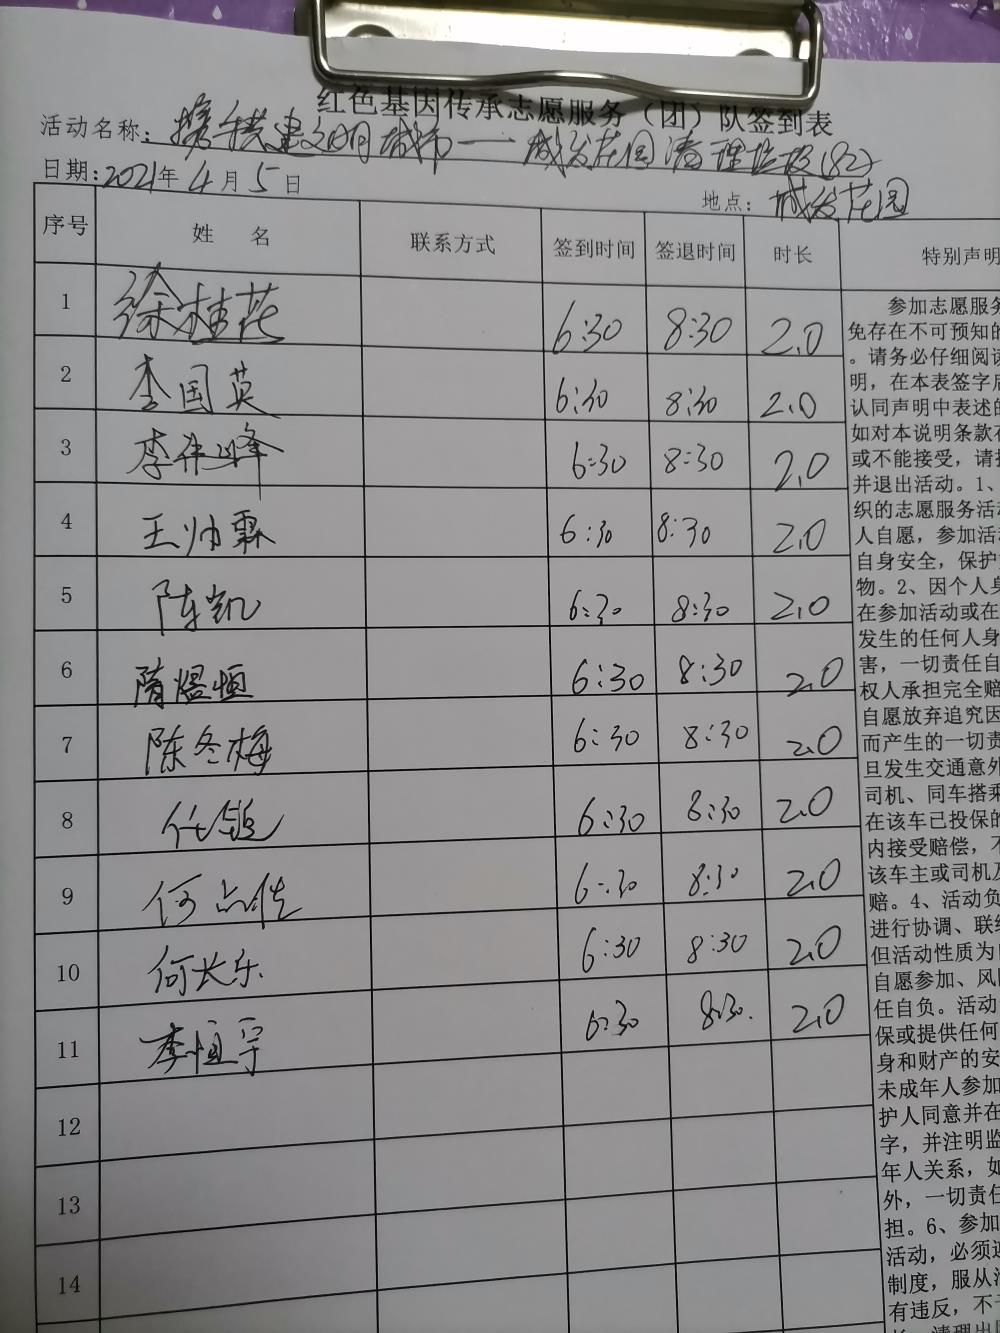 红色基因传承志愿服务（团）队签到表
活动名称：携手共建文明城市——城发花园清理垃圾(82)
日期:2021年4月5日
地点：城发花园
序号 姓名 联系方式 签到时间 签退时间 时长 特别声明
1 徐桂花 6:30 8:30 2.0
2 李国英 6:30 8:30 2.0
3 李伟峰 6:30 8:30 2.0
4 王帅霖 6:30 8:30 2.0
5 陈凯 6:30 8:30 2.0
6 隋煜恒 6:30 8:30 2.0
7 陈冬梅 6:30 8:30 2.0
8 任 6:30 8:30 2.0
9 何 6:30 8:30 2.0
10 何长乐 6:30 8:30 2.0
11 李恒宇 6:30 8:30 2.0
12
13
14
参加志愿服务
免存在不可预知的
。请务必仔细阅读
明，在本表签字后
认同声明中表述的
如对本说明条款有
或不能接受，请
并退出活动。1、
织的志愿服务活动
人自愿，参加活
自身安全，保护
物。2、因个人身
在参加活动或在
发生的任何人身
害，一切责任自
权人承担完全赔
自愿放弃追究因
而产生的一切责
旦发生交通意外
司机、同车搭乘
在该车已投保的
内接受赔偿，不
该车主或司机及
赔。4、活动负
进行协调、联络
但活动性质为
自愿参加、风
任自负。活动
保或提供任何
身和财产的安
未成年人参加
护人同意并在
字，并注明监
年人关系，如
外，一切责任
担。6、参加
活动，必须
制度，服从
有违反，不